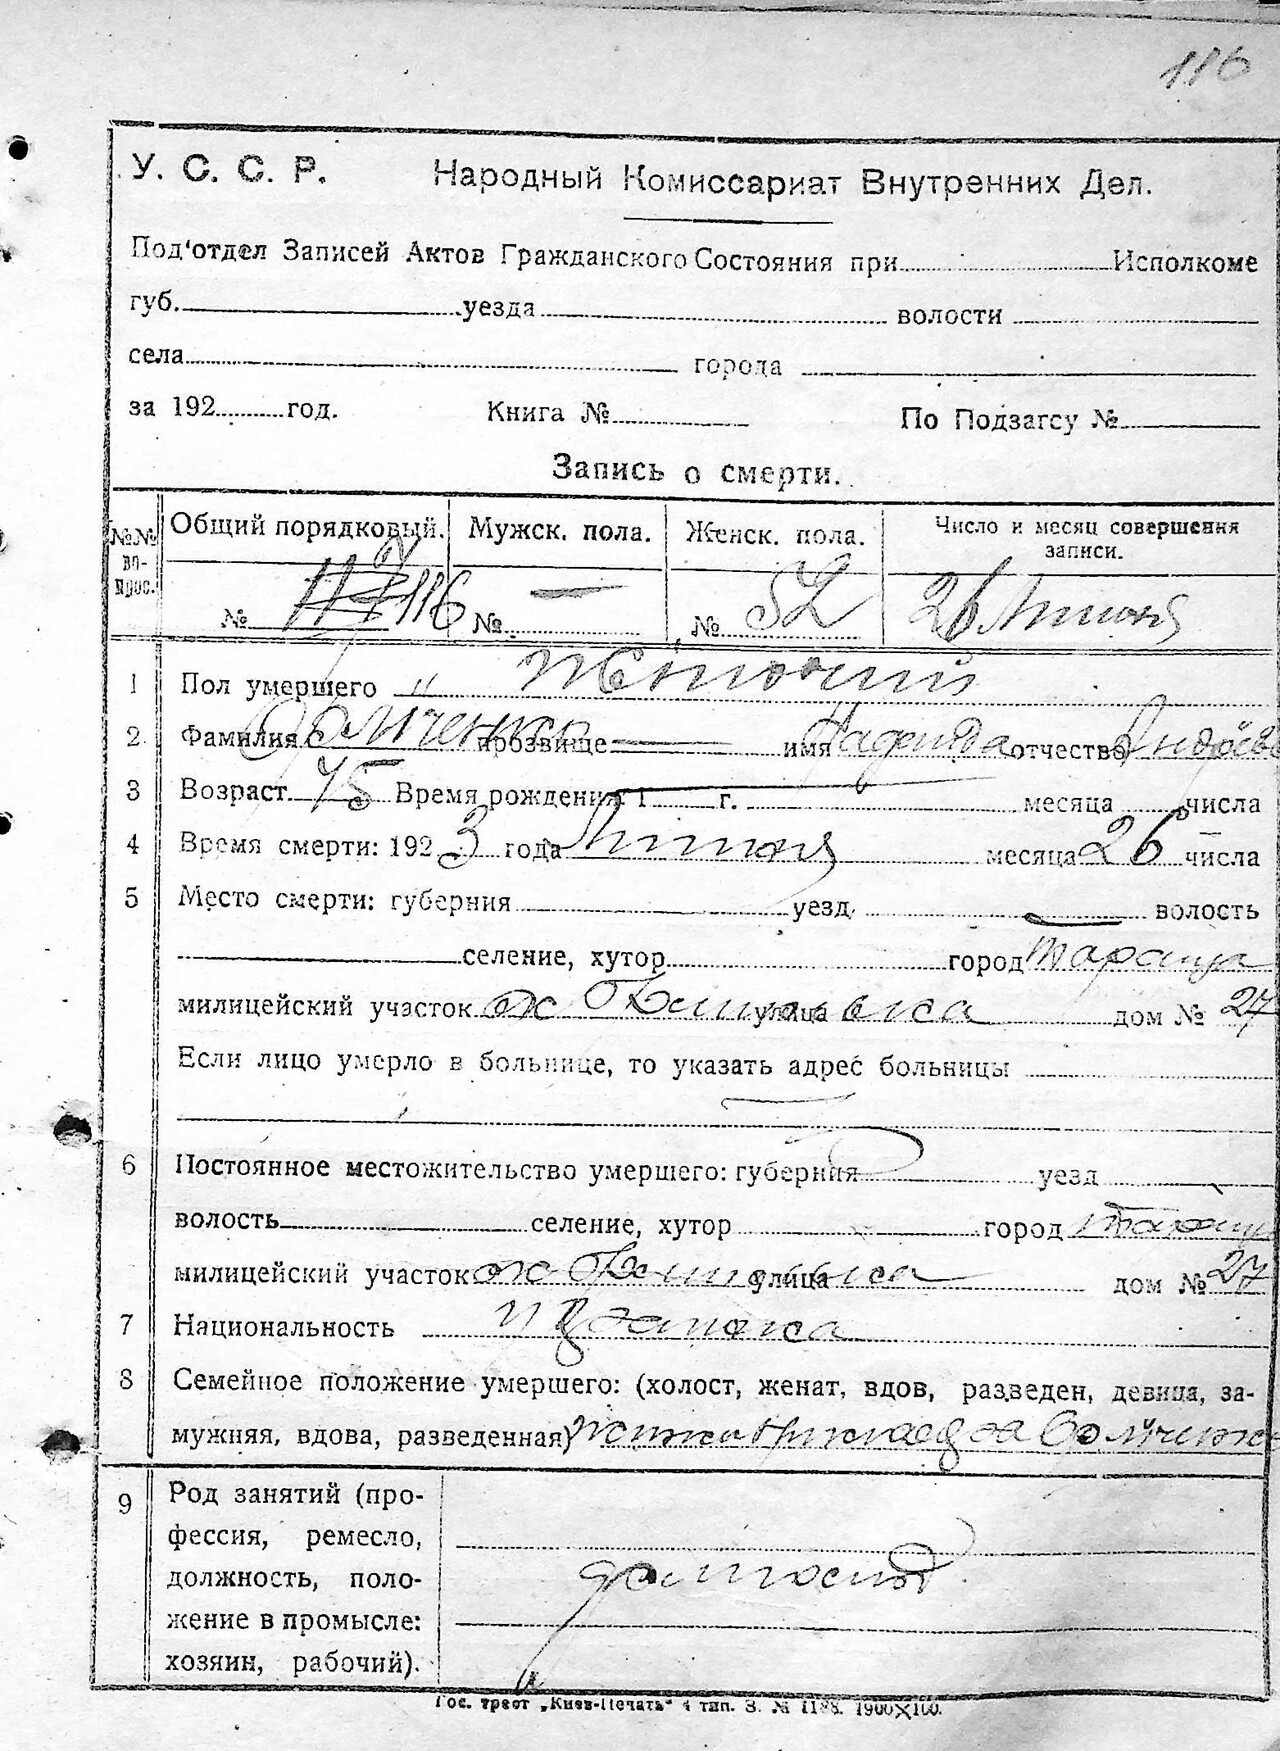 116
У. С. С. Р. Народный Комиссариат Внутренних Дел.
Под'отдел Записей Актов Гражданского Состояния при Исполкоме
губ. уезда волости
села города
за 192 год. Книга № По Подзагсу №
Запись о смерти.
№№ во-прос. Общий порядковый. Мужск. пола. Женск. пола. Число и месяц совершения записи.
№ 116 № — № 52 26
1 Пол умершего „ женский
2 Фамилия прозвище — имя Надежда отчество
3 Возраст 75 Время рождения: 1 г. месяца числа
4 Время смерти: 192 3 года месяца 26 числа
5 Место смерти: губерния уезд волость
селение, хутор город Тараща
милицейский участок улица дом № 27
Если лицо умерло в больнице, то указать адрес больницы
6 Постоянное местожительство умершего: губерния уезд
волость селение, хутор город Тараща
милицейский участок улица дом № 27
7 Национальность
8 Семейное положение умершего: (холост, женат, вдов, разведен, девица, за-
мужняя, вдова, разведенная)
9 Род занятий (про-
фессия, ремесло,
должность, поло-
жение в промысле:
хозяин, рабочий).
Гос. трест „Киев-Печать" 4 тип. З. № 1188. 1900×100.